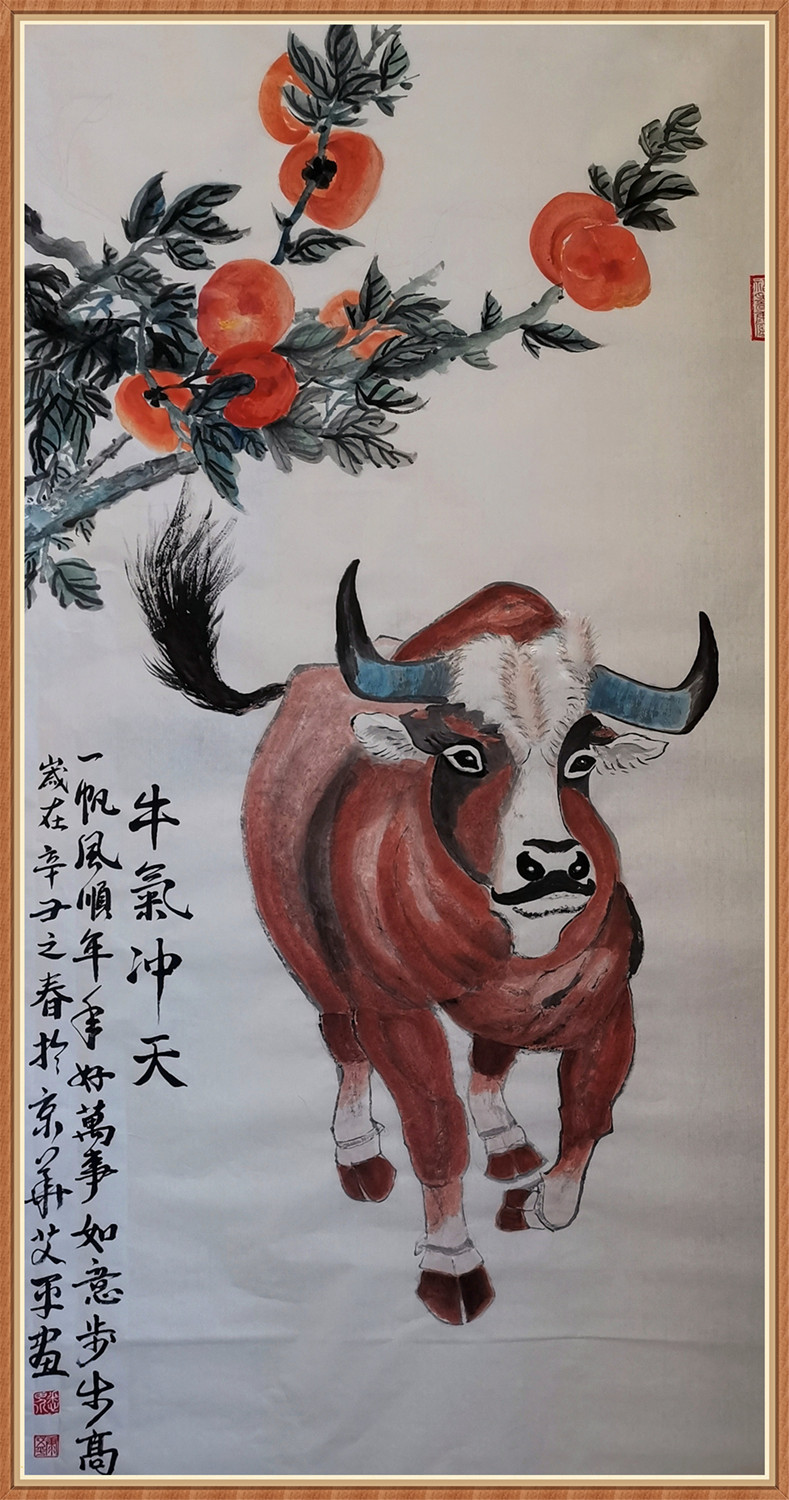 牛氣冲天
一帆風順年年好萬事如意步步高
歲在辛丑之春於京華艾平畫